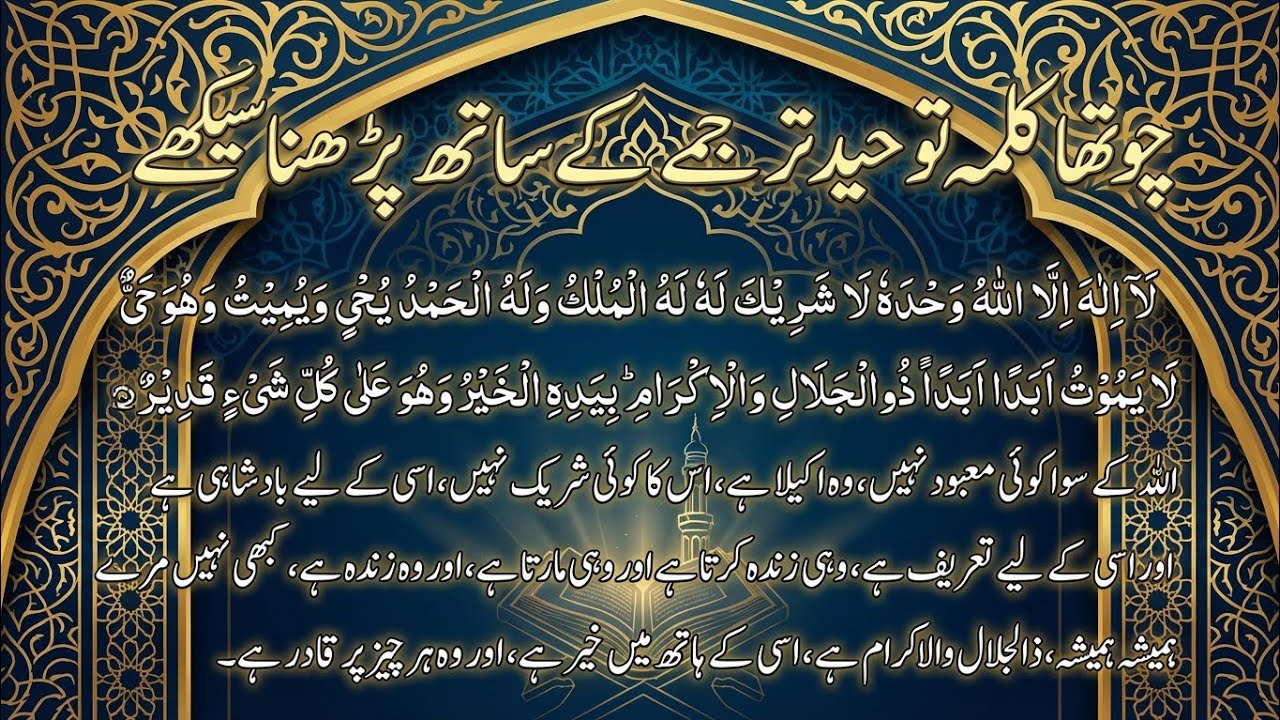 چوتھا کلمہ توحید ترجمے کے ساتھ پڑھنا سیکھے
لَآ اِلٰهَ اِلَّا اللّٰهُ وَحْدَهٗ لَا شَرِيْكَ لَهٗ لَهُ الْمُلْكُ وَلَهُ الْحَمْدُ يُحْيٖ وَيُمِيْتُ وَهُوَ حَیٌّ
لَا يَمُوْتُ اَبَدًا اَبَدًا ذُوالْجَلَالِ وَالْاِكْرَامِ ؕ بِيَدِهِ الْخَيْرُ وَهُوَ عَلٰى كُلِّ شَیْءٍ قَدِيْرٌ ۝
اللہ کے سوا کوئی معبود نہیں، وہ اکیلا ہے، اس کا کوئی شریک نہیں، اسی کے لیے بادشاہی ہے
اور اسی کے لیے تعریف ہے، وہی زندہ کرتا ہے اور وہی مارتا ہے، اور وہ زندہ ہے، کبھی نہیں مرے
ہمیشہ ہمیشہ، ذالجلال والاکرام ہے، اسی کے ہاتھ میں خیر ہے، اور وہ ہر چیز پر قادر ہے۔